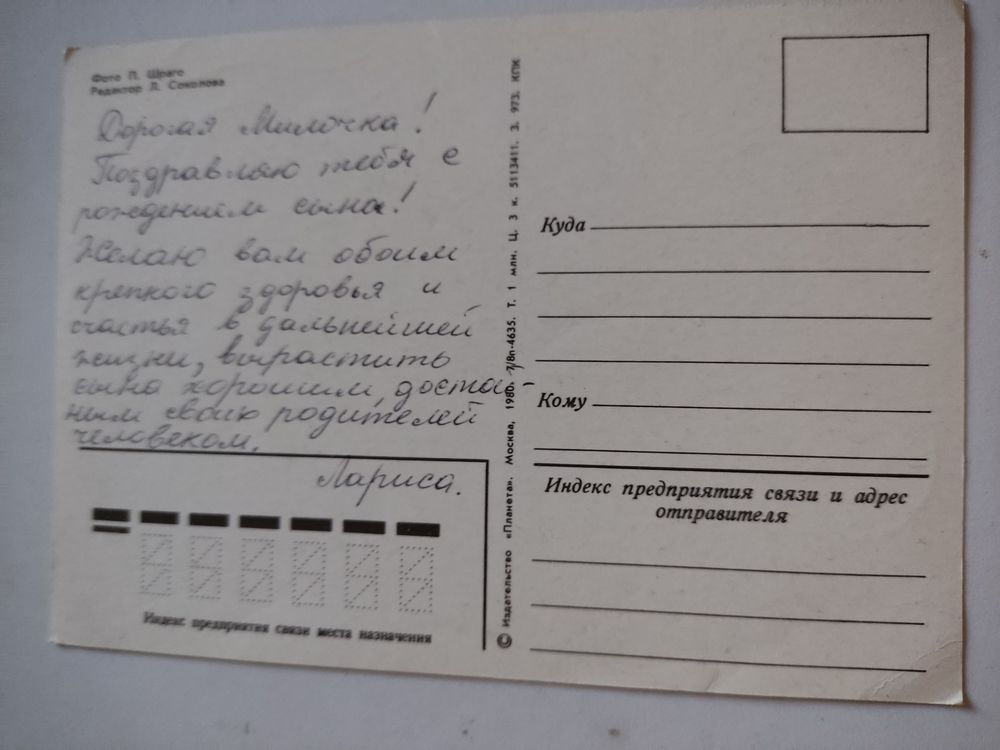 Фото П. Шраго
Редактор Л. Соколова
Дорогая Милочка!
Поздравляю тебя с
рождением сына!
Желаю вам обоим
крепкого здоровья и
счастья в дальнейшей
жизни, вырастить
сына хорошим, достой-
ным своих родителей
человеком.
Лариса.
Индекс предприятия связи места назначения
© Издательство «Планета». Москва, 1980. 7/8п-4635. Т. 1 млн. Ц. 3 к. 5113411. З. 973. КПК
Куда
Кому
Индекс предприятия связи и адрес
отправителя